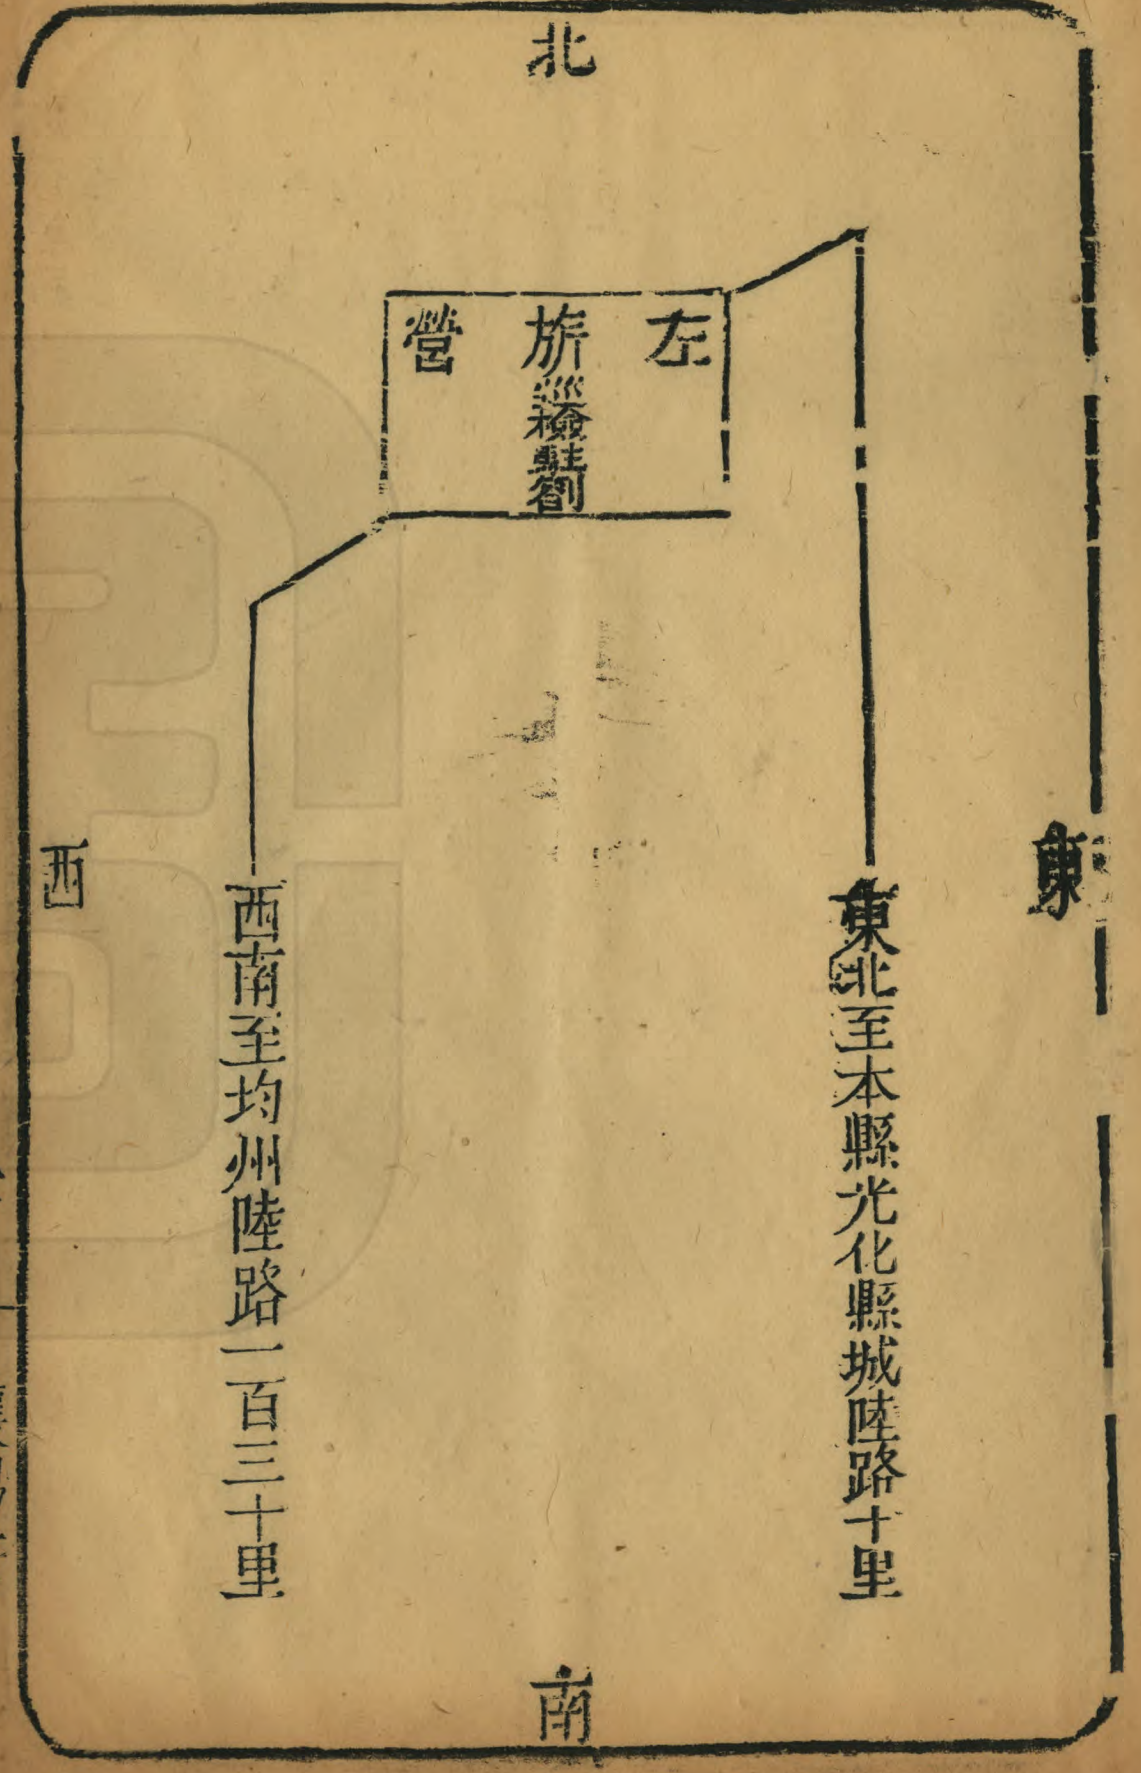 北
東
左旂營
巡檢駐劄
東北至本縣光化縣城陸路十里
西南至均州陸路一百三十里
西
南